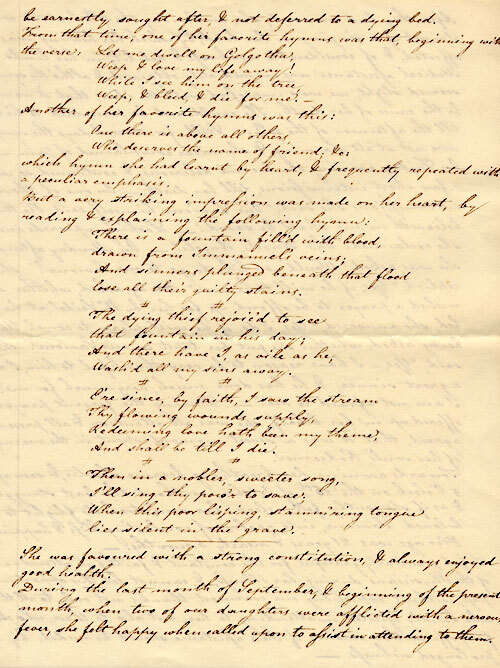 be earnestly sought after, & not deferred to a dying bed.
From that time, one of her favorite hymns was that, beginning with
the verse: Let me dwell on Golgotha,
Weep & love my life away!
While I see him on the tree
Weep, & bleed, & die for me! –
Another of her favorite hymns was this:
One there is above all others,
Who deserves the name of friend; &c:
which hymn she had learnt by heart, & frequently repeated with
a peculiar emphasis.
But a very striking impression was made on her heart, by
reading & explaining the following hymn:
There is a fountain fill'd with blood,
drawn from Immanuel's veins;
And sinners plunged beneath that flood
lose all their guilty stains.
# #
The dying thief rejoic'd to see
that fountain in his day;
And there have I, as vile as he,
Wash'd all my sins away.
# #
E're since, by faith, I saw the stream
Thy flowing wounds supply,
Redeeming love hath been my theme,
And shall be till I die.
# #
Then in a nobler, sweeter song,
I'll sing thy pow'r to save;
When this poor lisping, stamm'ring tongue
lies silent in the grave.
She was favoured with a strong constitution, & always enjoyed
good health.
During the last month of September, & beginning of the present
month, when two of our daughters were afflicted with a nervous
fever, she felt happy when called upon to assist in attending to them.